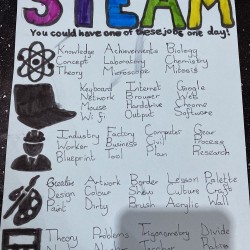 STEAM
You could have one of these jobs one day!
Knowledge Achievements Biology
Concept Laboratory Chemistry
Theory Microscope Mitosis
Keyboard Internet Google
Network Browner Web
Mouse Hardrive Chrome
Wifi Output Software
Industry Factory Computer Gear
Worker Business Civil Process
Blueprint Tool Plan Research
Creative Artwork Border Lesson Palette
Design Colour Show Culture Craft
Paint Dirty Brush Acrylic Wall
Theory Problems Trigonometry Divide